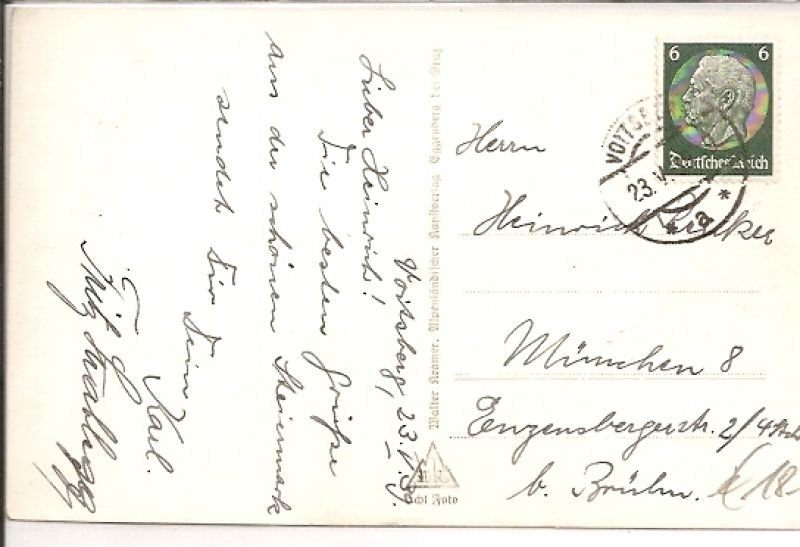 Voitsberg, 23.V.39.
Lieber Heinrich!
Die besten Grüße
aus der schönen Steiermark
sendet Dir Dein
Karl.
Walter Kramer, Alpenländischer Kunstverlag, Eggenberg bei Graz
Echt Foto
6 6
Deutsches Reich
VOITSB
23. V.
* a *
Herrn
Heinrich
München 8
Enzensbergerstr. 2/4
b. Brühm.
18